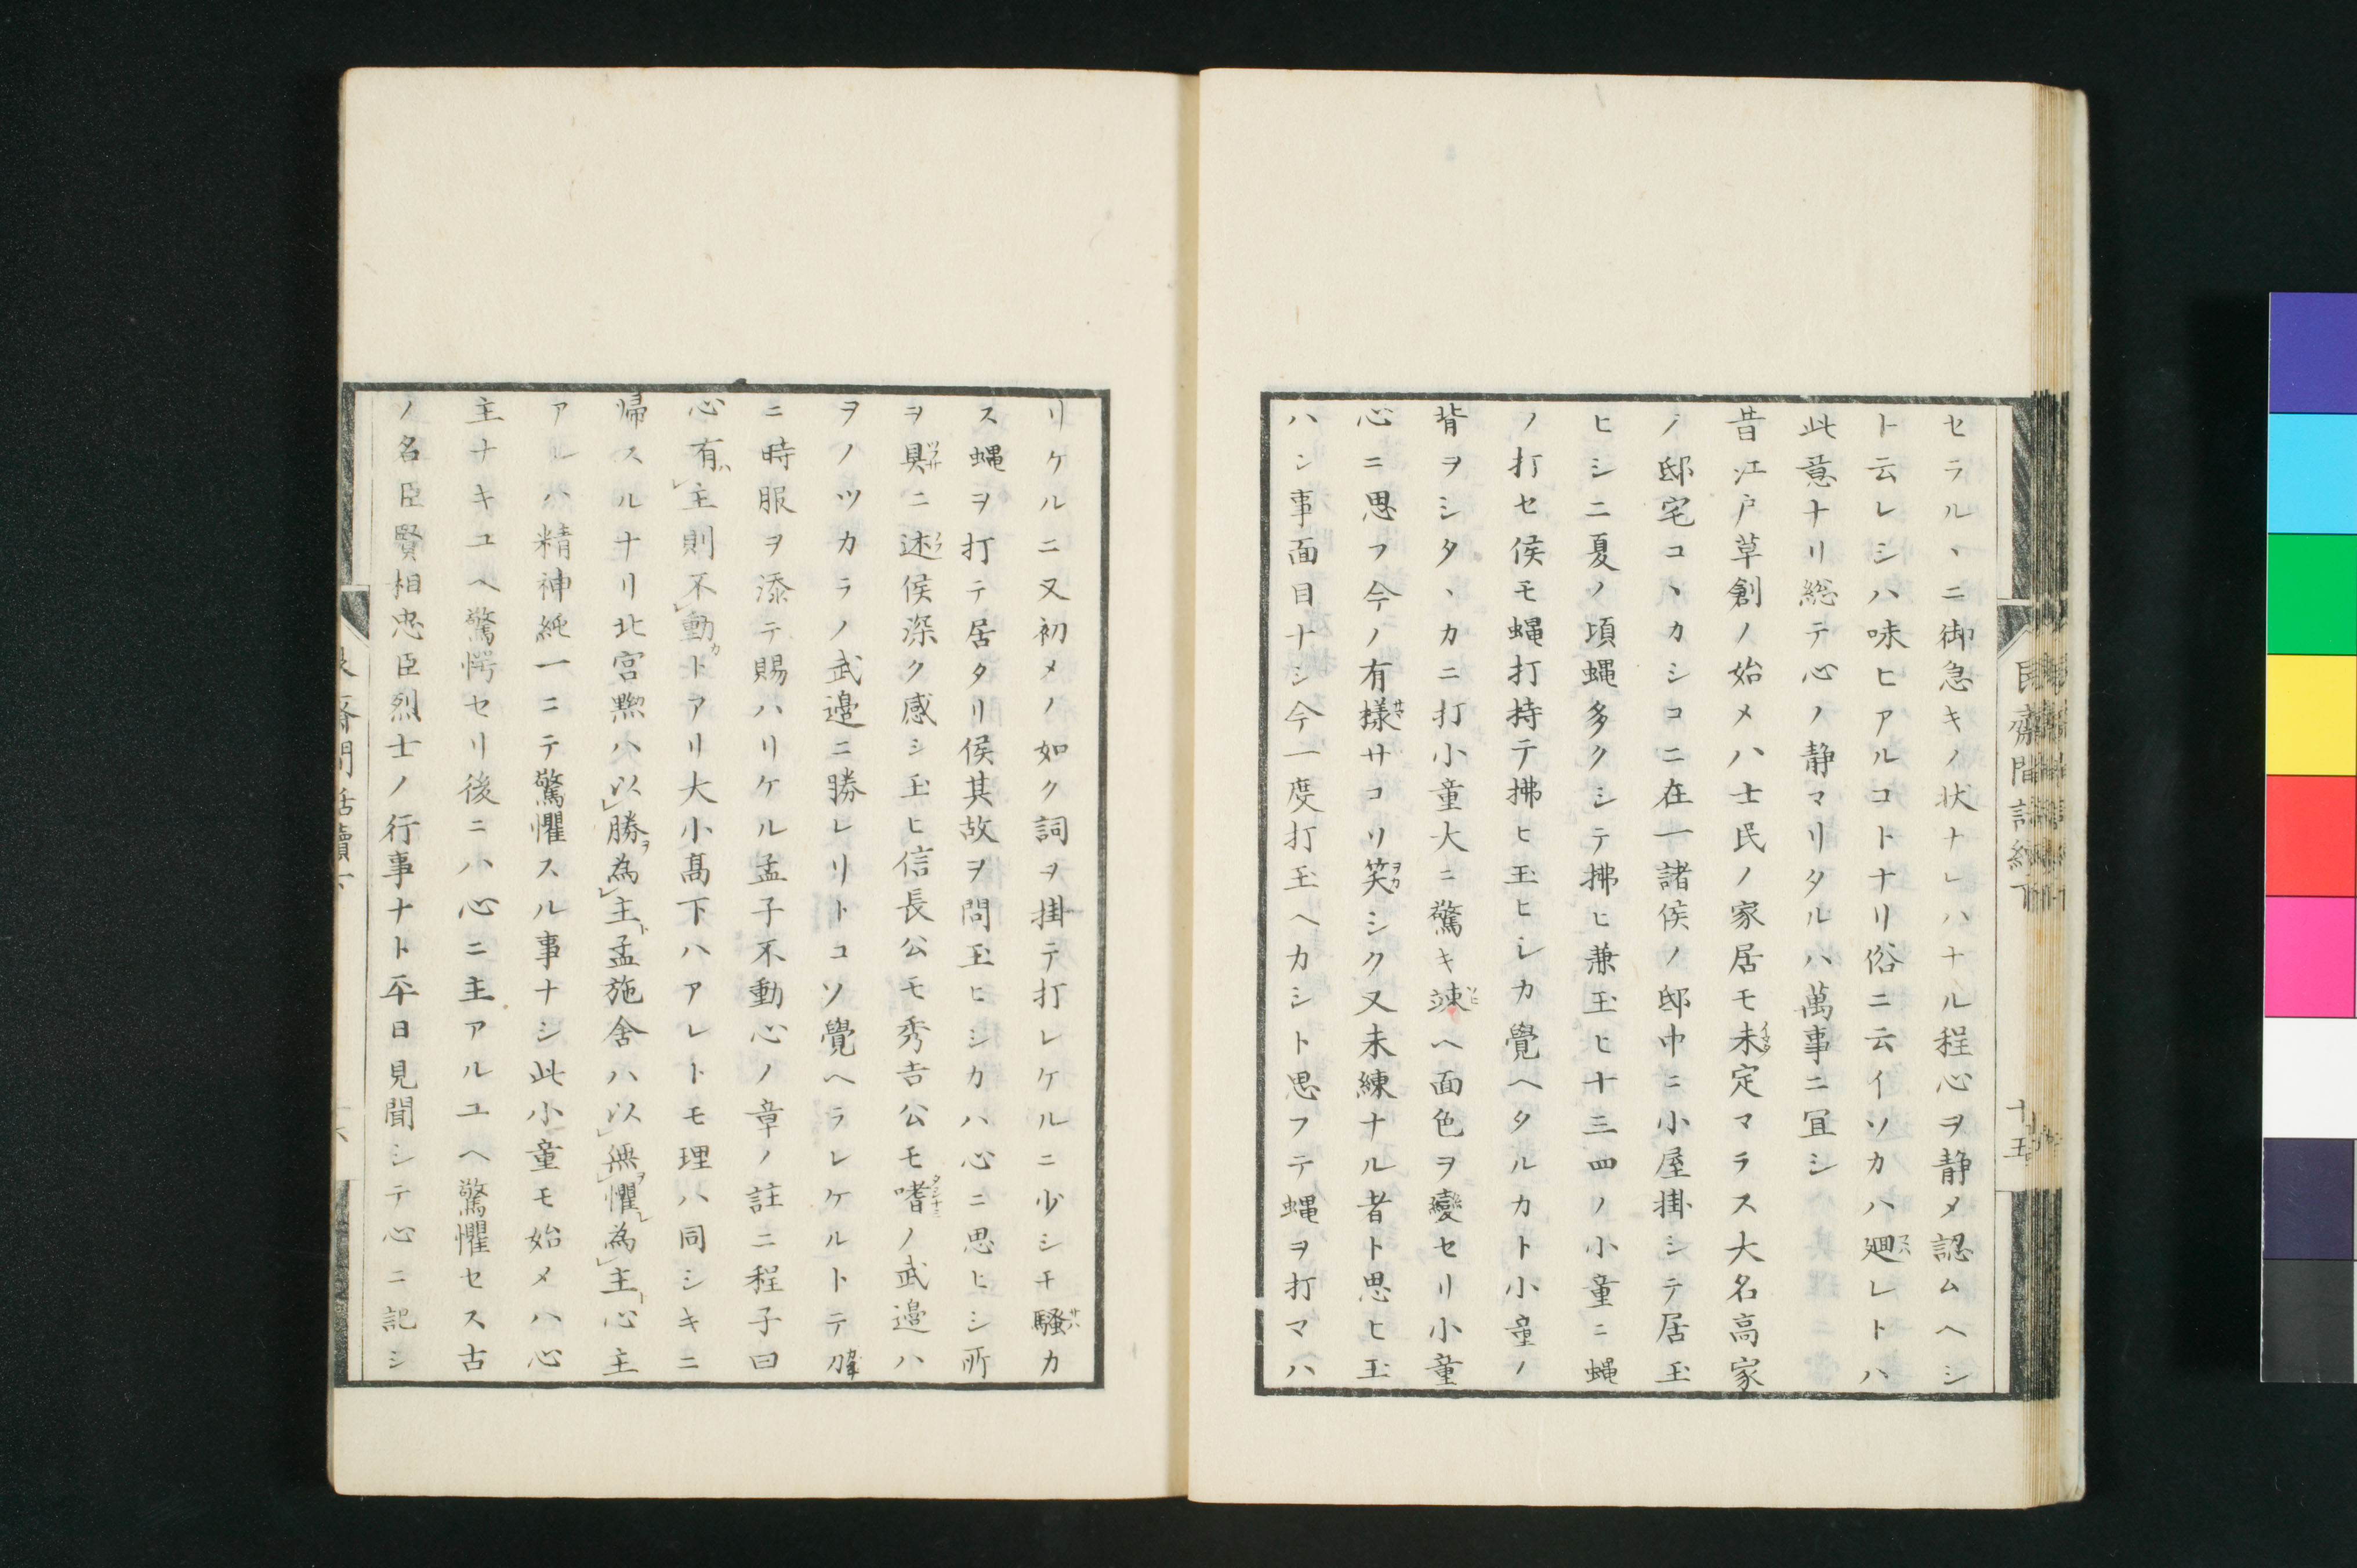 セラルヽニ御急キノ状ナレハナル程心ヲ静メ認ムヘシ
ト云レシハ味ヒアルコトナリ俗ニ云イソカハ廻レトハ
此意ナリ総テ心ノ静マリタルハ萬事ニ冝シ
昔江戸草創ノ始メハ士民ノ家居モ未定マラス大名高家
ノ邸宅コヽカシコニ在一諸侯ノ邸中ニ小屋掛シテ居玉
ヒシニ夏ノ頃蝿多クシテ拂ヒ兼玉ヒ十三四ノ小童ニ蝿
ノ打セ侯モ蝿打持テ拂ヒ玉ヒシカ覺ヘタルカト小童ノ
背ヲシタヽカニ打小童大ニ驚キ竦ヘ面色ヲ變セリ小童
心ニ思フ今ノ有樣サコソ笑シク又未練ナル者ト思ヒ玉
ハン事面目ナシ今一度打玉ヘカシト思フテ蝿ヲ打マハ
リケルニ又初メノ如ク詞ヲ掛テ打レケルニ少シモ騒カ
ス蝿ヲ打テ居タリ侯其故ヲ問玉ヒシカハ心ニ思ヒシ所
ヲ具ニ述侯深ク感シ玉ヒ信長公モ秀吉公モ嗜ノ武邊ハ
ヲノツカラノ武邊ニ勝レリトコソ覺ヘラレケルトテ
ニ時服ヲ添テ賜ハリケル孟子不動心ノ章ノ註ニ程子曰
心有主則不動トアリ大小髙下ハアレトモ理ハ同シキニ
帰スルナリ北宮黝ハ以勝為主孟施舍ハ以無懼為主心主
アルハ精神純一ニテ驚懼スル事ナシ此小童モ始メハ心
主ナキユヘ驚愕セリ後ニハ心ニ主アルユヘ驚懼セス古
ノ名臣賢相忠臣烈士ノ行事ナト平日見聞シテ心ニ記シ